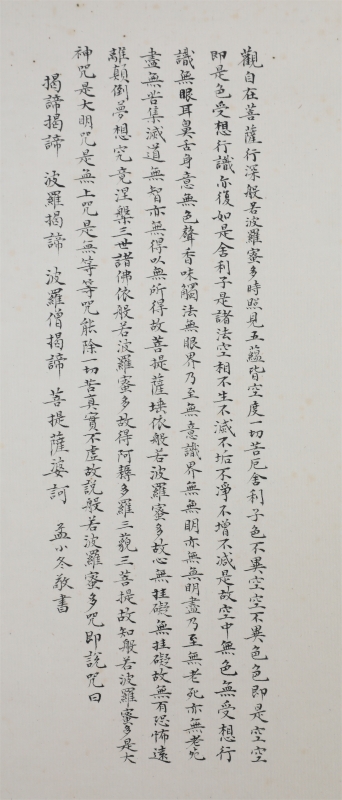 觀自在菩薩行深般若波羅蜜多時照見五蘊皆空度一切苦厄舍利子色不異空空不異色色即是空空
即是色受想行識亦復如是舍利子是諸法空相不生不滅不垢不淨不增不減是故空中無色無受想行
識無眼耳鼻舌身意無色聲香味觸法無眼界乃至無意識界無無明亦無無明盡乃至無老死亦無老死
盡無苦集滅道無智亦無得以無所得故菩提薩埵依般若波羅蜜多故心無挂礙無挂礙故無有恐怖遠
離顛倒夢想究竟涅槃三世諸佛依般若波羅蜜多故得阿耨多羅三藐三菩提故知般若波羅蜜多是大
神咒是大明咒是無上咒是無等等咒能除一切苦真實不虛故說般若波羅蜜多咒即說咒曰
揭諦揭諦 波羅揭諦 波羅僧揭諦 菩提薩婆訶 孟小冬敬書